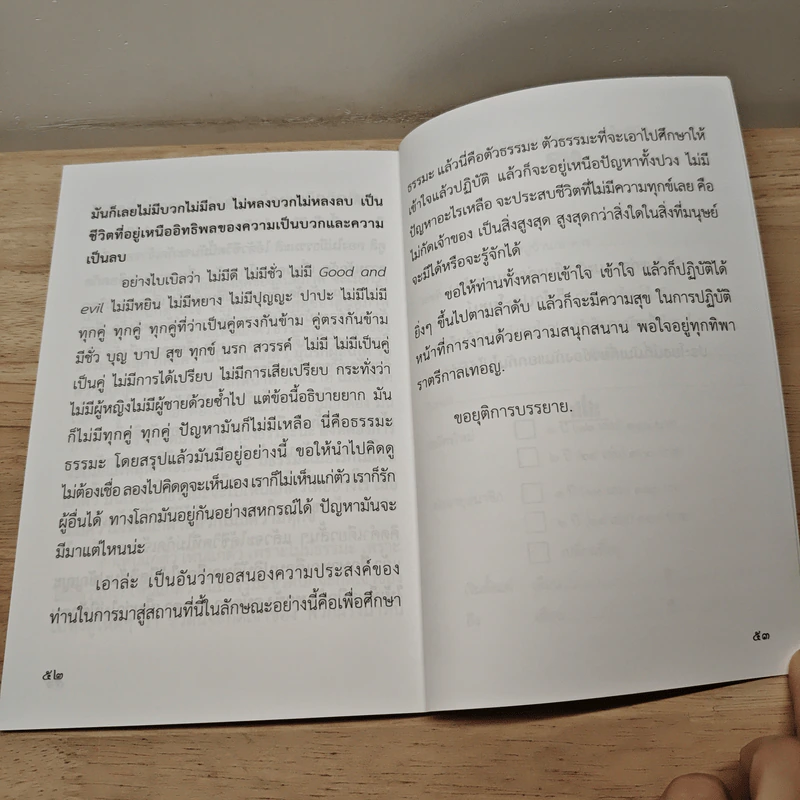 มันก็เลยไม่มีบวกไม่มีลบ ไม่หลงบวกไม่หลงลบ เป็น
ชีวิตที่อยู่เหนืออิทธิพลของความเป็นบวกและความ
เป็นลบ
อย่างไบเบิลว่า ไม่มีดี ไม่มีชั่ว ไม่มี Good and
evil ไม่มีหยิน ไม่มีหยาง ไม่มีปุญญะ ปาปะ ไม่มีไม่มี
ทุกคู่ ทุกคู่ ทุกคู่ที่ว่าเป็นคู่ตรงกันข้าม คู่ตรงกันข้าม
มีชั่ว บุญ บาป สุข ทุกข์ นรก สวรรค์ ไม่มี ไม่มีเป็นคู่
เป็นคู่ ไม่มีการได้เปรียบ ไม่มีการเสียเปรียบ กระทั่งว่า
ไม่มีผู้หญิงไม่มีผู้ชายด้วยซ้ำไป แต่ข้อนี้อธิบายยาก มัน
ก็ไม่มีทุกคู่ ทุกคู่ ปัญหามันก็ไม่มีเหลือ นี่คือธรรมะ
ธรรมะ โดยสรุปแล้วมันมีอยู่อย่างนี้ ขอให้นำไปคิดดู
ไม่ต้องเชื่อ ลองไปคิดดูจะเห็นเอง เราก็ไม่เห็นแก่ตัว เราก็รัก
ผู้อื่นได้ ทางโลกมันอยู่กันอย่างสหกรณ์ได้ ปัญหามันจะ
มีมาแต่ไหนน่ะ
เอาล่ะ เป็นอันว่าขอสนองความประสงค์ของ
ท่านในการมาสู่สถานที่นี้ในลักษณะอย่างนี้คือเพื่อศึกษา
๕๒
ธรรมะ แล้วนี่คือตัวธรรมะ ตัวธรรมะที่จะเอาไปศึกษาให้
เข้าใจแล้วปฏิบัติ แล้วก็จะอยู่เหนือปัญหาทั้งปวง ไม่มี
ปัญหาอะไรเหลือ จะประสบชีวิตที่ไม่มีความทุกข์เลย คือ
ไม่กัดเจ้าของ เป็นสิ่งสูงสุด สูงสุดกว่าสิ่งใดในสิ่งที่มนุษย์
จะมีได้หรือจะรู้จักได้
ขอให้ท่านทั้งหลายเข้าใจ เข้าใจ แล้วก็ปฏิบัติได้
ยิ่งๆ ขึ้นไปตามลำดับ แล้วก็จะมีความสุข ในการปฏิบัติ
หน้าที่การงานด้วยความสนุกสนาน พอใจอยู่ทุกทิพา
ราตรีกาลเทอญ.
ขอยุติการบรรยาย.
๕๓